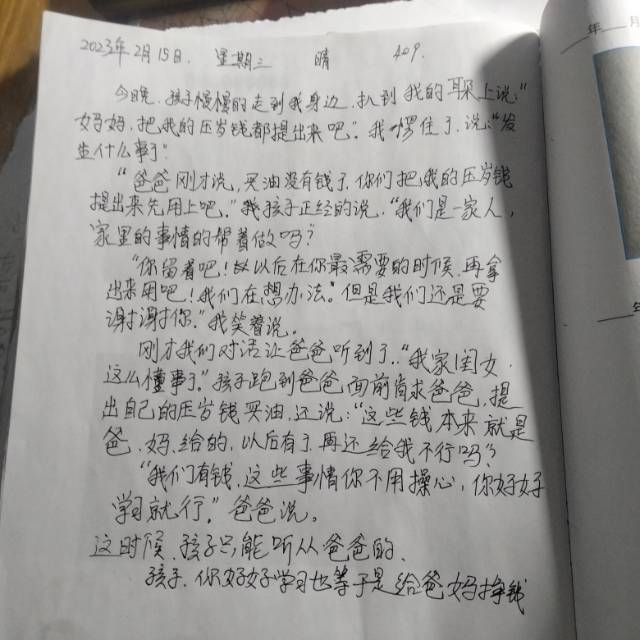 2023年2月15日. 星期三 晴 409.
今晚, 孩子慢慢的走到我身边, 扒到我的耳朵上说"
妈妈, 把我的压岁钱都提出来吧". 我愣住了, 说:"发
生什么事了"
"爸爸刚才说, 买油没有钱了, 你们把我的压岁钱
提出来先用上吧." 我孩子正经的说. "我们是一家人,
家里的事情的帮着做吗?
"你留着吧! 以后在你最需要的时候, 再拿
出来用吧! 我们在想办法". 但是我们还是要
谢谢你." 我笑着说.
刚才我们对话让爸爸听到了. "我家闺女,
这么懂事了". 孩子跑到爸爸面前肯求爸爸, 提
出自己的压岁钱买油, 还说:"这些钱本来就是
爸, 妈, 给的, 以后有了, 再还给我不行吗?
"我们有钱, 这些事情你不用操心, 你好好
学习就行." 爸爸说.
这时候, 孩子只能听从爸爸的.
孩子, 你好好学习也等于是给爸妈挣钱
年 月
年